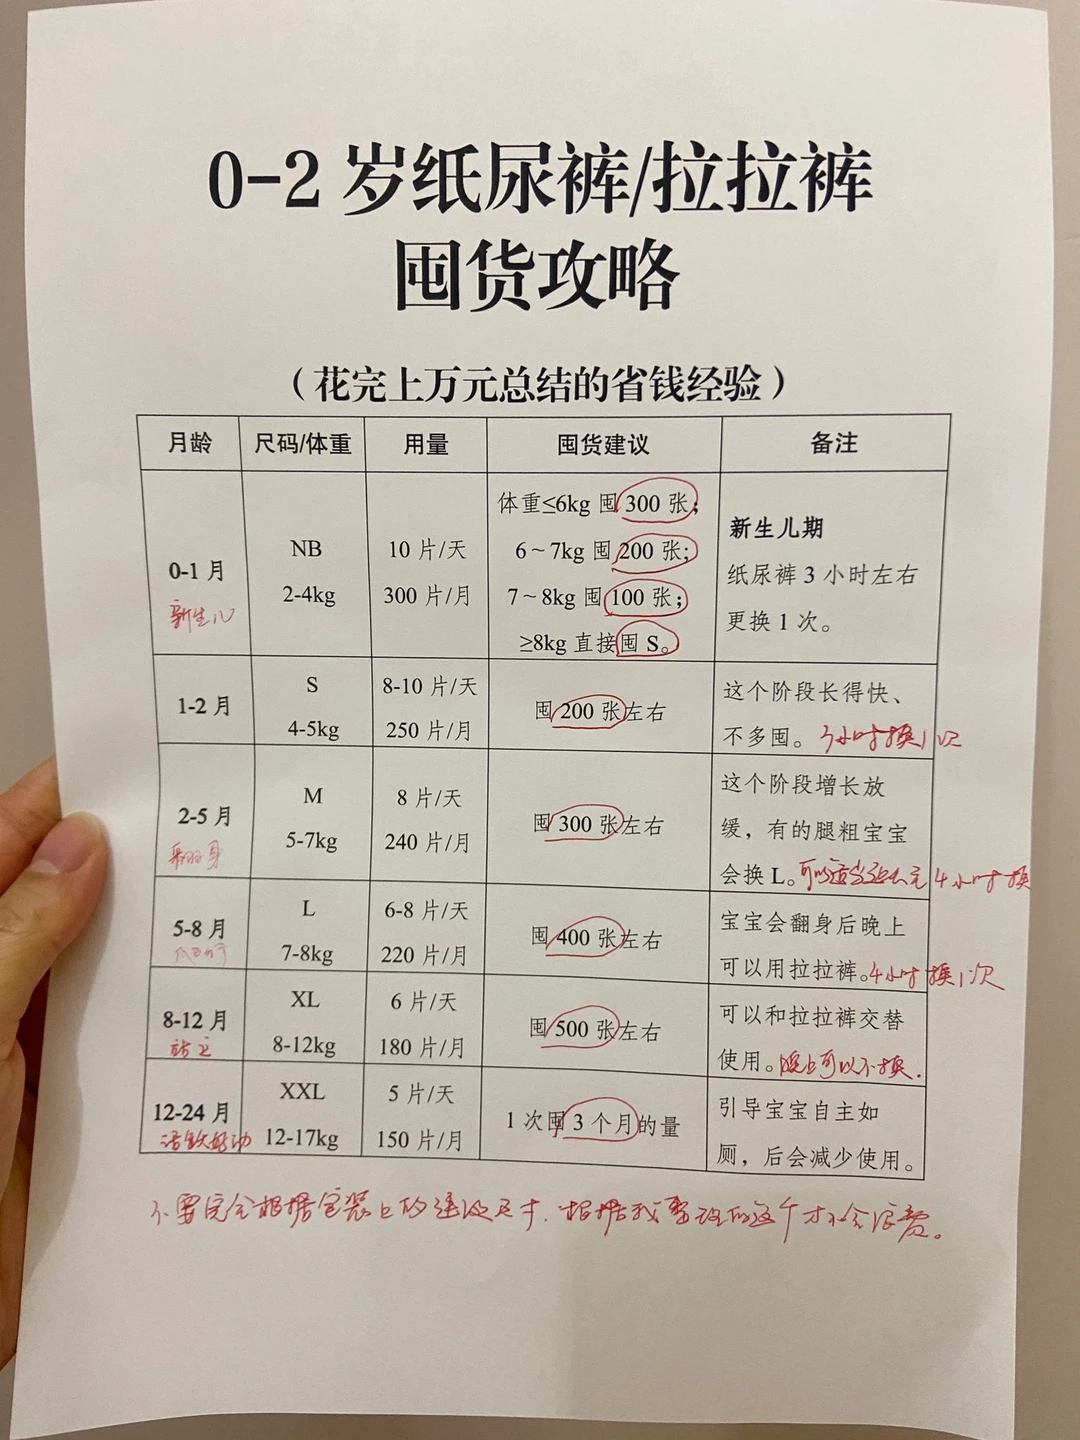 0-2 岁纸尿裤/拉拉裤
囤货攻略
（花完上万元总结的省钱经验）
月龄 尺码/体重 用量 囤货建议 备注
0-1 月
新生儿
NB
2-4kg
10 片/天
300 片/月
体重≤6kg 囤 300 张；
6～7kg 囤 200 张;
7～8kg 囤 100 张；
≥8kg 直接囤 S。
新生儿期
纸尿裤 3 小时左右
更换 1 次。
1-2 月
S
4-5kg
8-10 片/天
250 片/月
囤 200 张左右
这个阶段长得快、
不多囤。3小时换1次
2-5 月
翻身
M
5-7kg
8 片/天
240 片/月
囤 300 张左右
这个阶段增长放
缓，有的腿粗宝宝
会换 L。可以适当 4小时换
5-8 月
L
7-8kg
6-8 片/天
220 片/月
囤 400 张左右
宝宝会翻身后晚上
可以用拉拉裤。4小时换1次
8-12 月
站立
XL
8-12kg
6 片/天
180 片/月
囤 500 张左右
可以和拉拉裤交替
使用。晚上可以不换.
12-24 月
活泼好动
XXL
12-17kg
5 片/天
150 片/月
1 次囤 3 个月的量
引导宝宝自主如
厕，后会减少使用。
不要完全根据包装上的建议尺寸.根据我整理的这个才不会浪费。